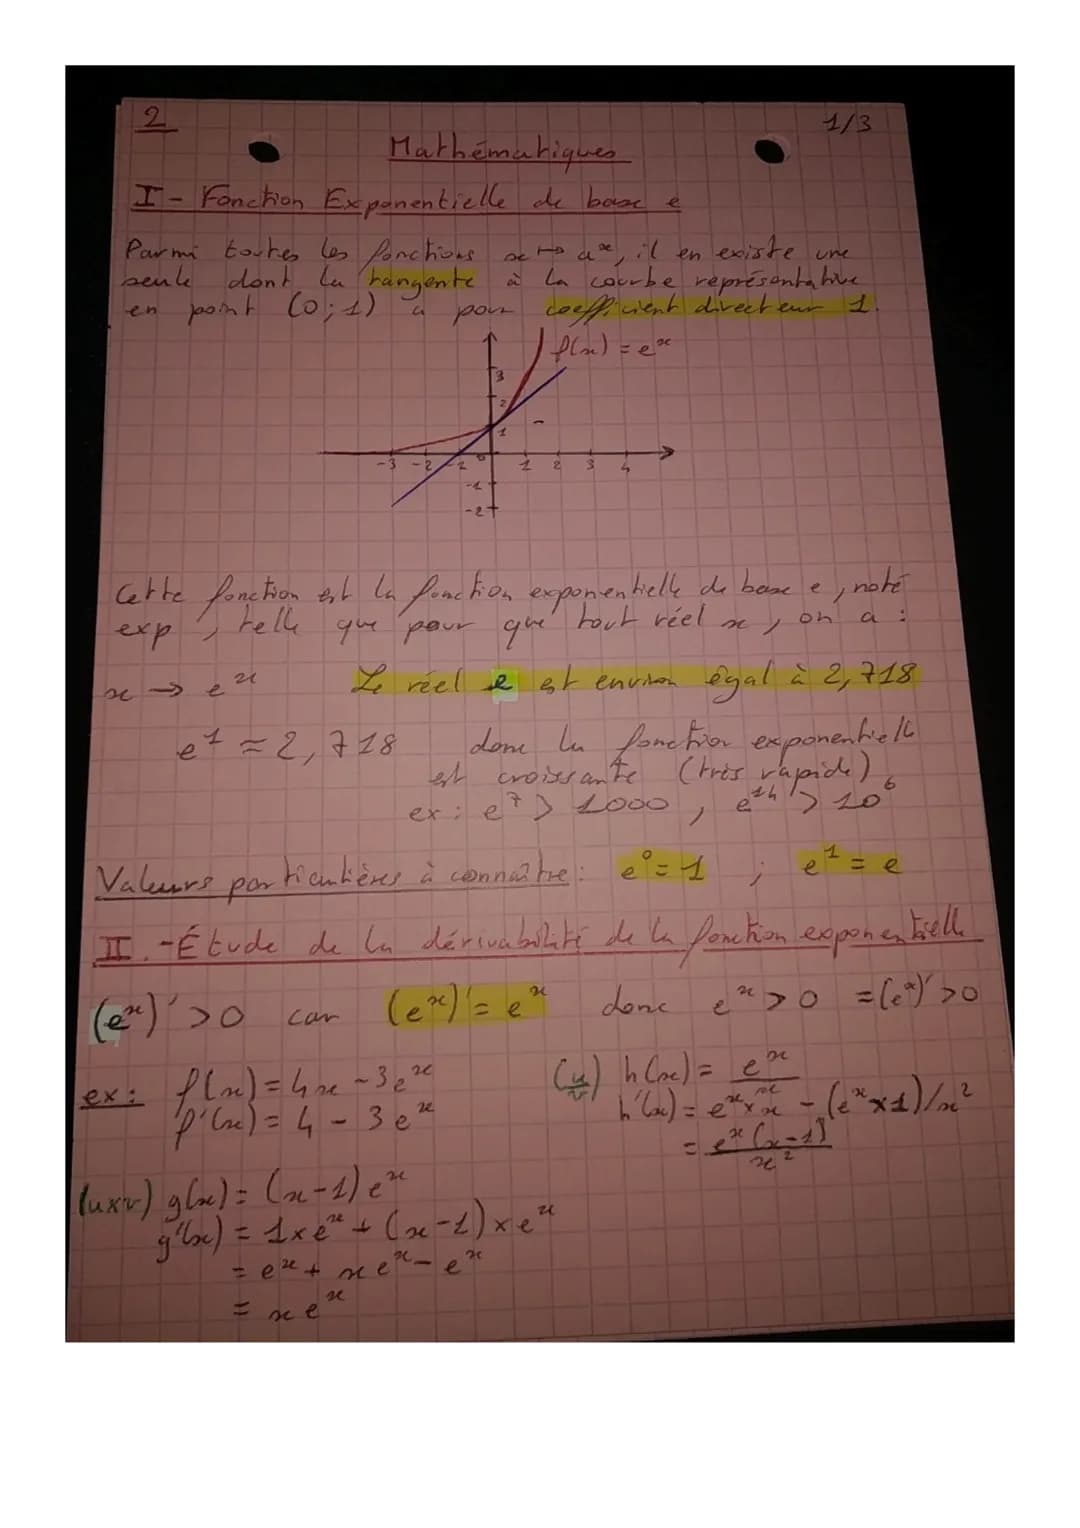 2
1/3
Mathématiques
I - Fonction Exponentielle de base e
Parmi toutes les fonctions x ↦ a^x, il en existe une
seule dont la tangente à la courbe représentative
en point (0;1) a pour coefficient directeur 1.
f(x) = e^x
3
2
1
-3 -2 -1 0 1 2 3 4
-1
-2
Cette fonction est la fonction exponentielle de base e, noté
exp, telle que pour que tout réel x, on a :
x → e^x Le réel e est environ égal à 2,718
e^1 ≈ 2,718 donc la fonction exponentielle
est croissante (très rapide)
ex : e^7 > 1000, e^14 > 10^6
Valeurs particulières à connaître : e^0 = 1 ; e^1 = e
II. - Étude de la dérivabilité de la fonction exponentielle
(e^x)' > 0 car (e^x)' = e^x donc e^x > 0 = (e^x)' > 0
ex : f(x) = 4x - 3e^x
f'(x) = 4 - 3e^x
(u/v) h(x) = e^x/x
h'(x) = e^x × x - (e^x × 1)/x^2
= e^x (x-1)/x^2
(u×v) g(x) = (x-1) e^x
g'(x) = 1 × e^x + (x-1) × e^x
= e^x + x e^x - e^x
= x e^x